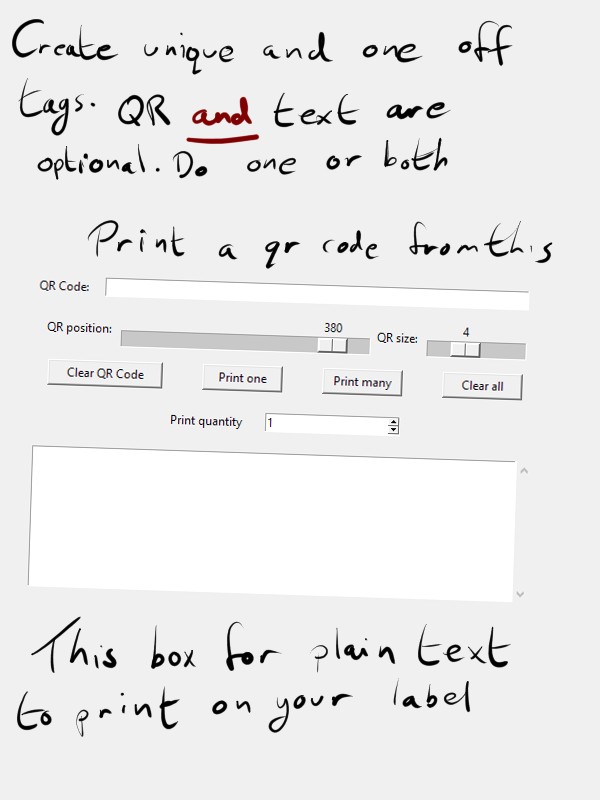 Create unique and one off
tags. QR and text are
optional. Do one or both
Print a qr code from this
QR Code:
QR position: 380 QR size: 4
Clear QR Code Print one Print many Clear all
Print quantity 1
This box for plain text
to print on your label